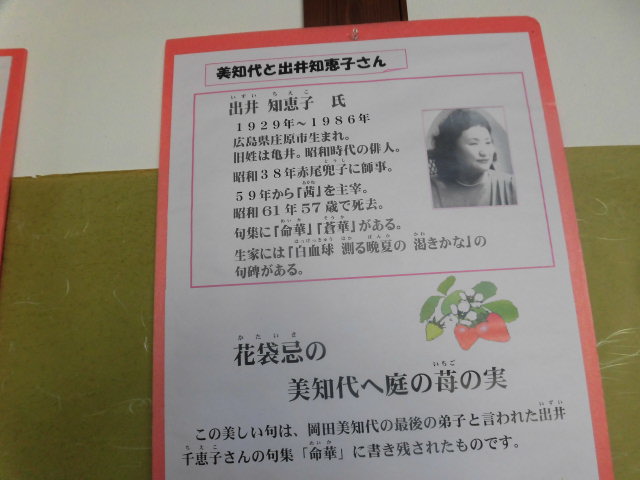 美知代と出井知恵子さん
出井 知恵子 氏
１９２９年～１９８６年
広島県庄原市生まれ。
旧姓は亀井。昭和時代の俳人。
昭和３８年赤尾兜子に師事。
５９年から『茜』を主宰。
昭和６１年５７歳で死去。
句集に『命華』『蒼華』がある。
生家には『白血球 測る晩夏の 渇きかな』の
句碑がある。
花袋忌の
美知代へ庭の苺の実
この美しい句は、岡田美知代の最後の弟子と言われた出井
千恵子さんの句集「命華」に書き残されたものです。